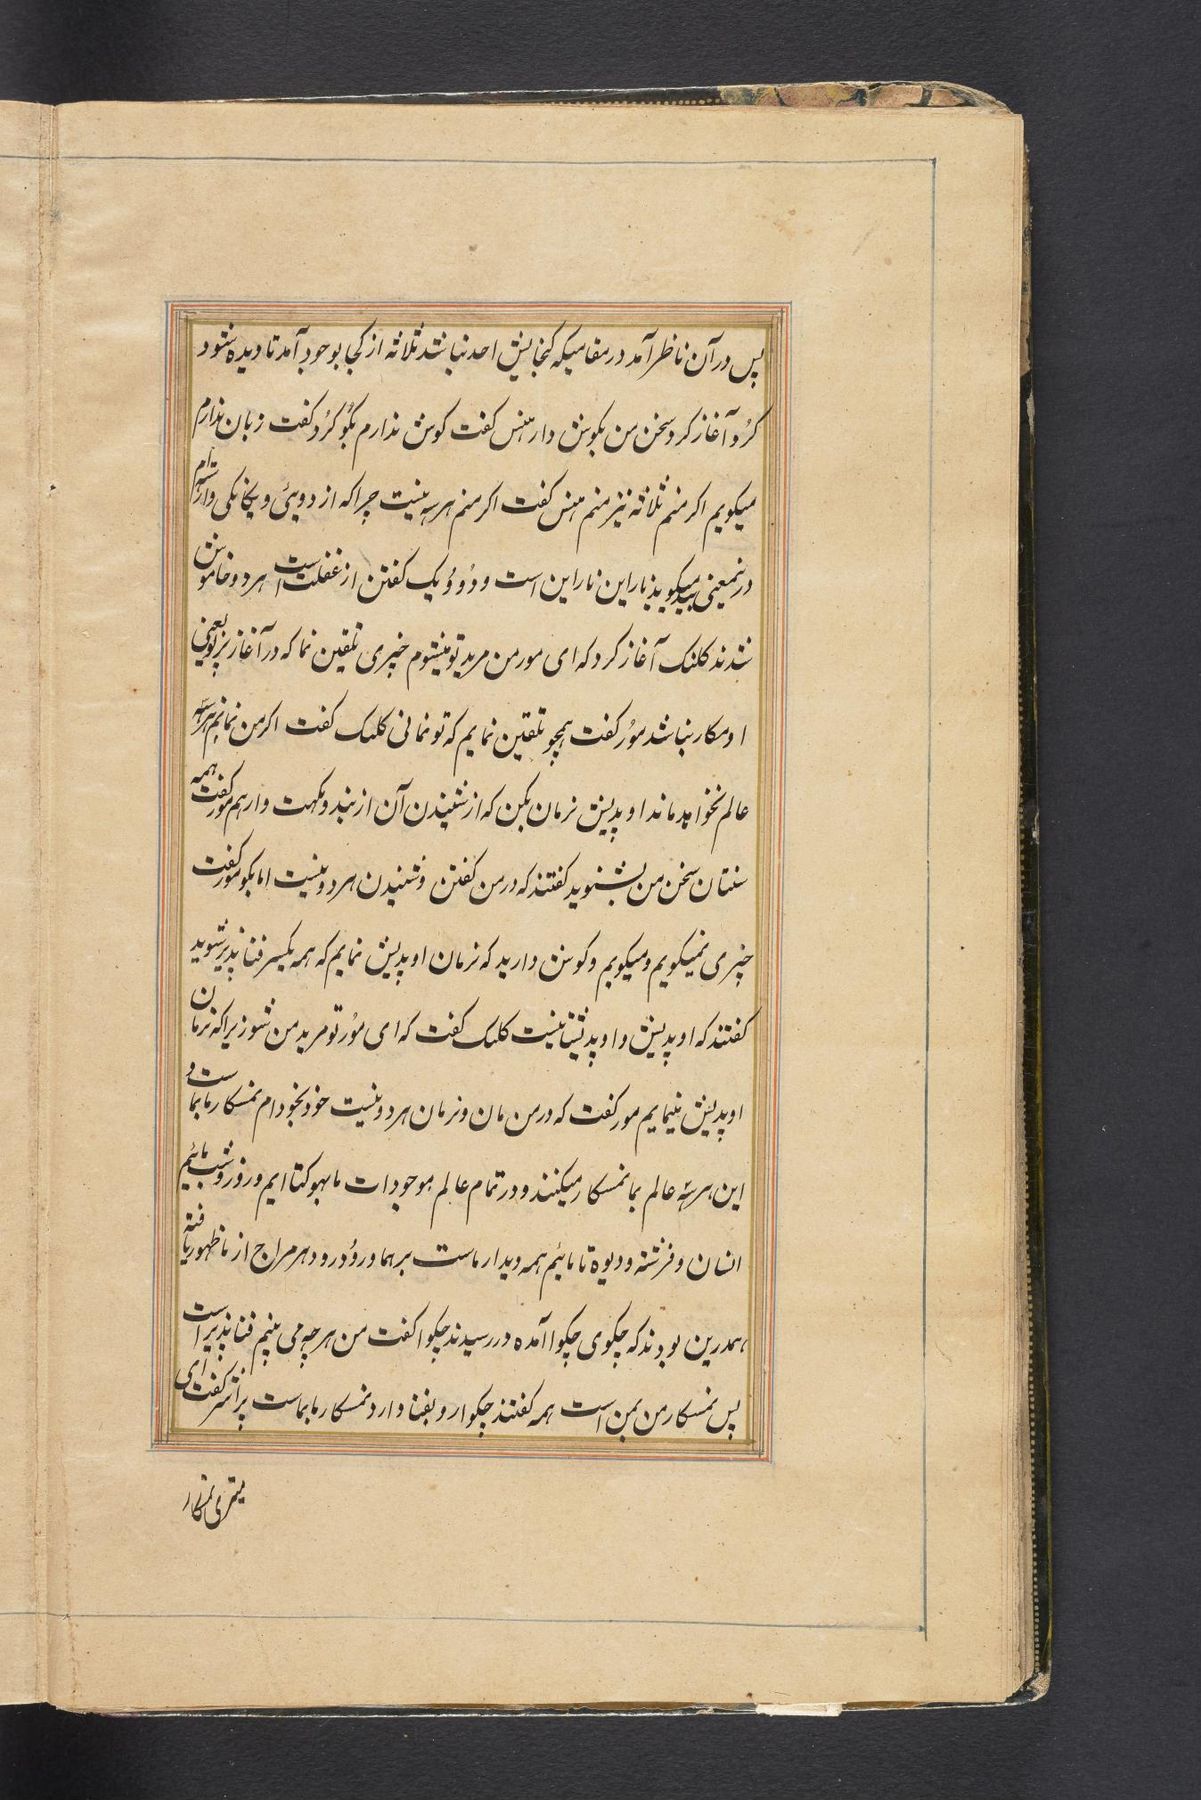 پس در آن ناظر آمد در مقامیکه گنجایش احد نباشد ثلاثه از کجا بوجود آمد تا دیده شود
کرُد آغاز کرد سخن من بکوش دار هنس کفت کوش ندارم بکو کرُد کفت زبان ندارم
میکویم اکر منم ثلاثه نیز منم هنس کفت اکر منم هر سه نیست چرا که از دویئ و یکانکی وارسته‌ام
درینمعنی بید میکوید ناراین ناراین است و دُو و یک کفتن از غفلت است هر دو خاموش
شدند کلنک آغاز کرد که ای مور من مرید تو میشوم چیزی تلقین نما که در آغاز پرلو یعنی
او مکار نباشد موُر کفت همچو تلقین نمایم که تو نمانی کلنک کفت اکر من نمانم هر سه
عالم نخواهد ماند اوپدیش نرمان بکن که از شنیدن آن از بند و مکهت وارهم مور کفت همه
سنتان سخن من بشنوید کفتند که در من کفتن و شنیدن هر دو نیست اما بکو مور کفت
چیزی نمیکویم و میکویم و کوش دارید که نرمان اوپدیش نمایم که همه یکسر فنا پذیر شوید
کفتند که اوپدیش و اوپدیشتا نیست کلنک کفت که ای موُر تو مرید من شو زیرا که نرمان
اوپدیش مینمایم مور کفت که در من مان و نرمان هر دو نیست خود بخود ام نمسکار ما بما است و
این هر سه عالم بما نمسکار میکنند و در تمام عالم موجودات ما بهوکتا ایم و روز و شب مائیم
انسان و فرشته و دیوه تا مائیم همه دیدار ماست برهما و رُودر و دهرمراج از ما ظهور یافته
همدرین بودند که چکوی چکوا آمده در رسیدند چکوا کفت من هرچه می بینم فنا پذیر است
پس نمسکار من بمن است همه کفتند چکوا رو بفنا دارد نمسکار ما بماست پراشر کفت ای
میتری نمسکار